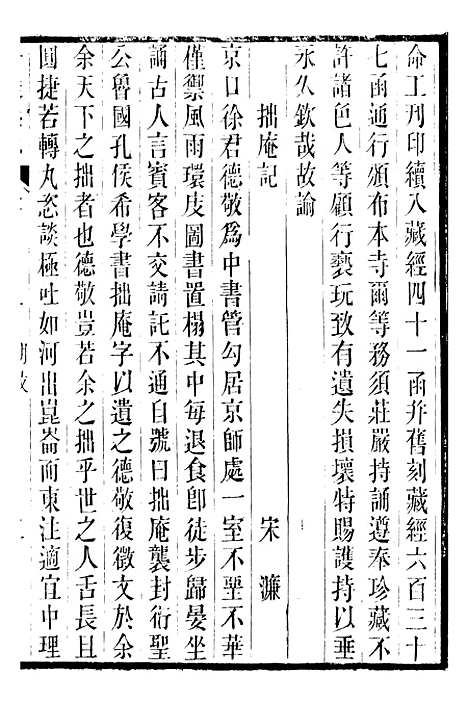 命工刋印續入藏經四十一函并舊刻藏經六百三十
七函通行頒布本寺爾等務須莊嚴持誦遵奉珍藏不
許諸色人等顧行褻玩致有遺失損壞特賜護持以垂
永久欽哉故諭
拙庵記 宋濂
京口徐君德敬爲中書管勾居京師處一室不堊不華
僅禦風雨環庋圖書置榻其中每退食卽徒步歸晏坐
誦古人言賓客不交請託不通自號曰拙庵襲封衍聖
公魯國孔侯希學書拙庵字以遺之德敬復徵文於余
余天下之拙者也德敬豈若余之拙乎世之人舌長且
圓捷若轉丸恣談極吐如河出崑崙而東注適宜中理